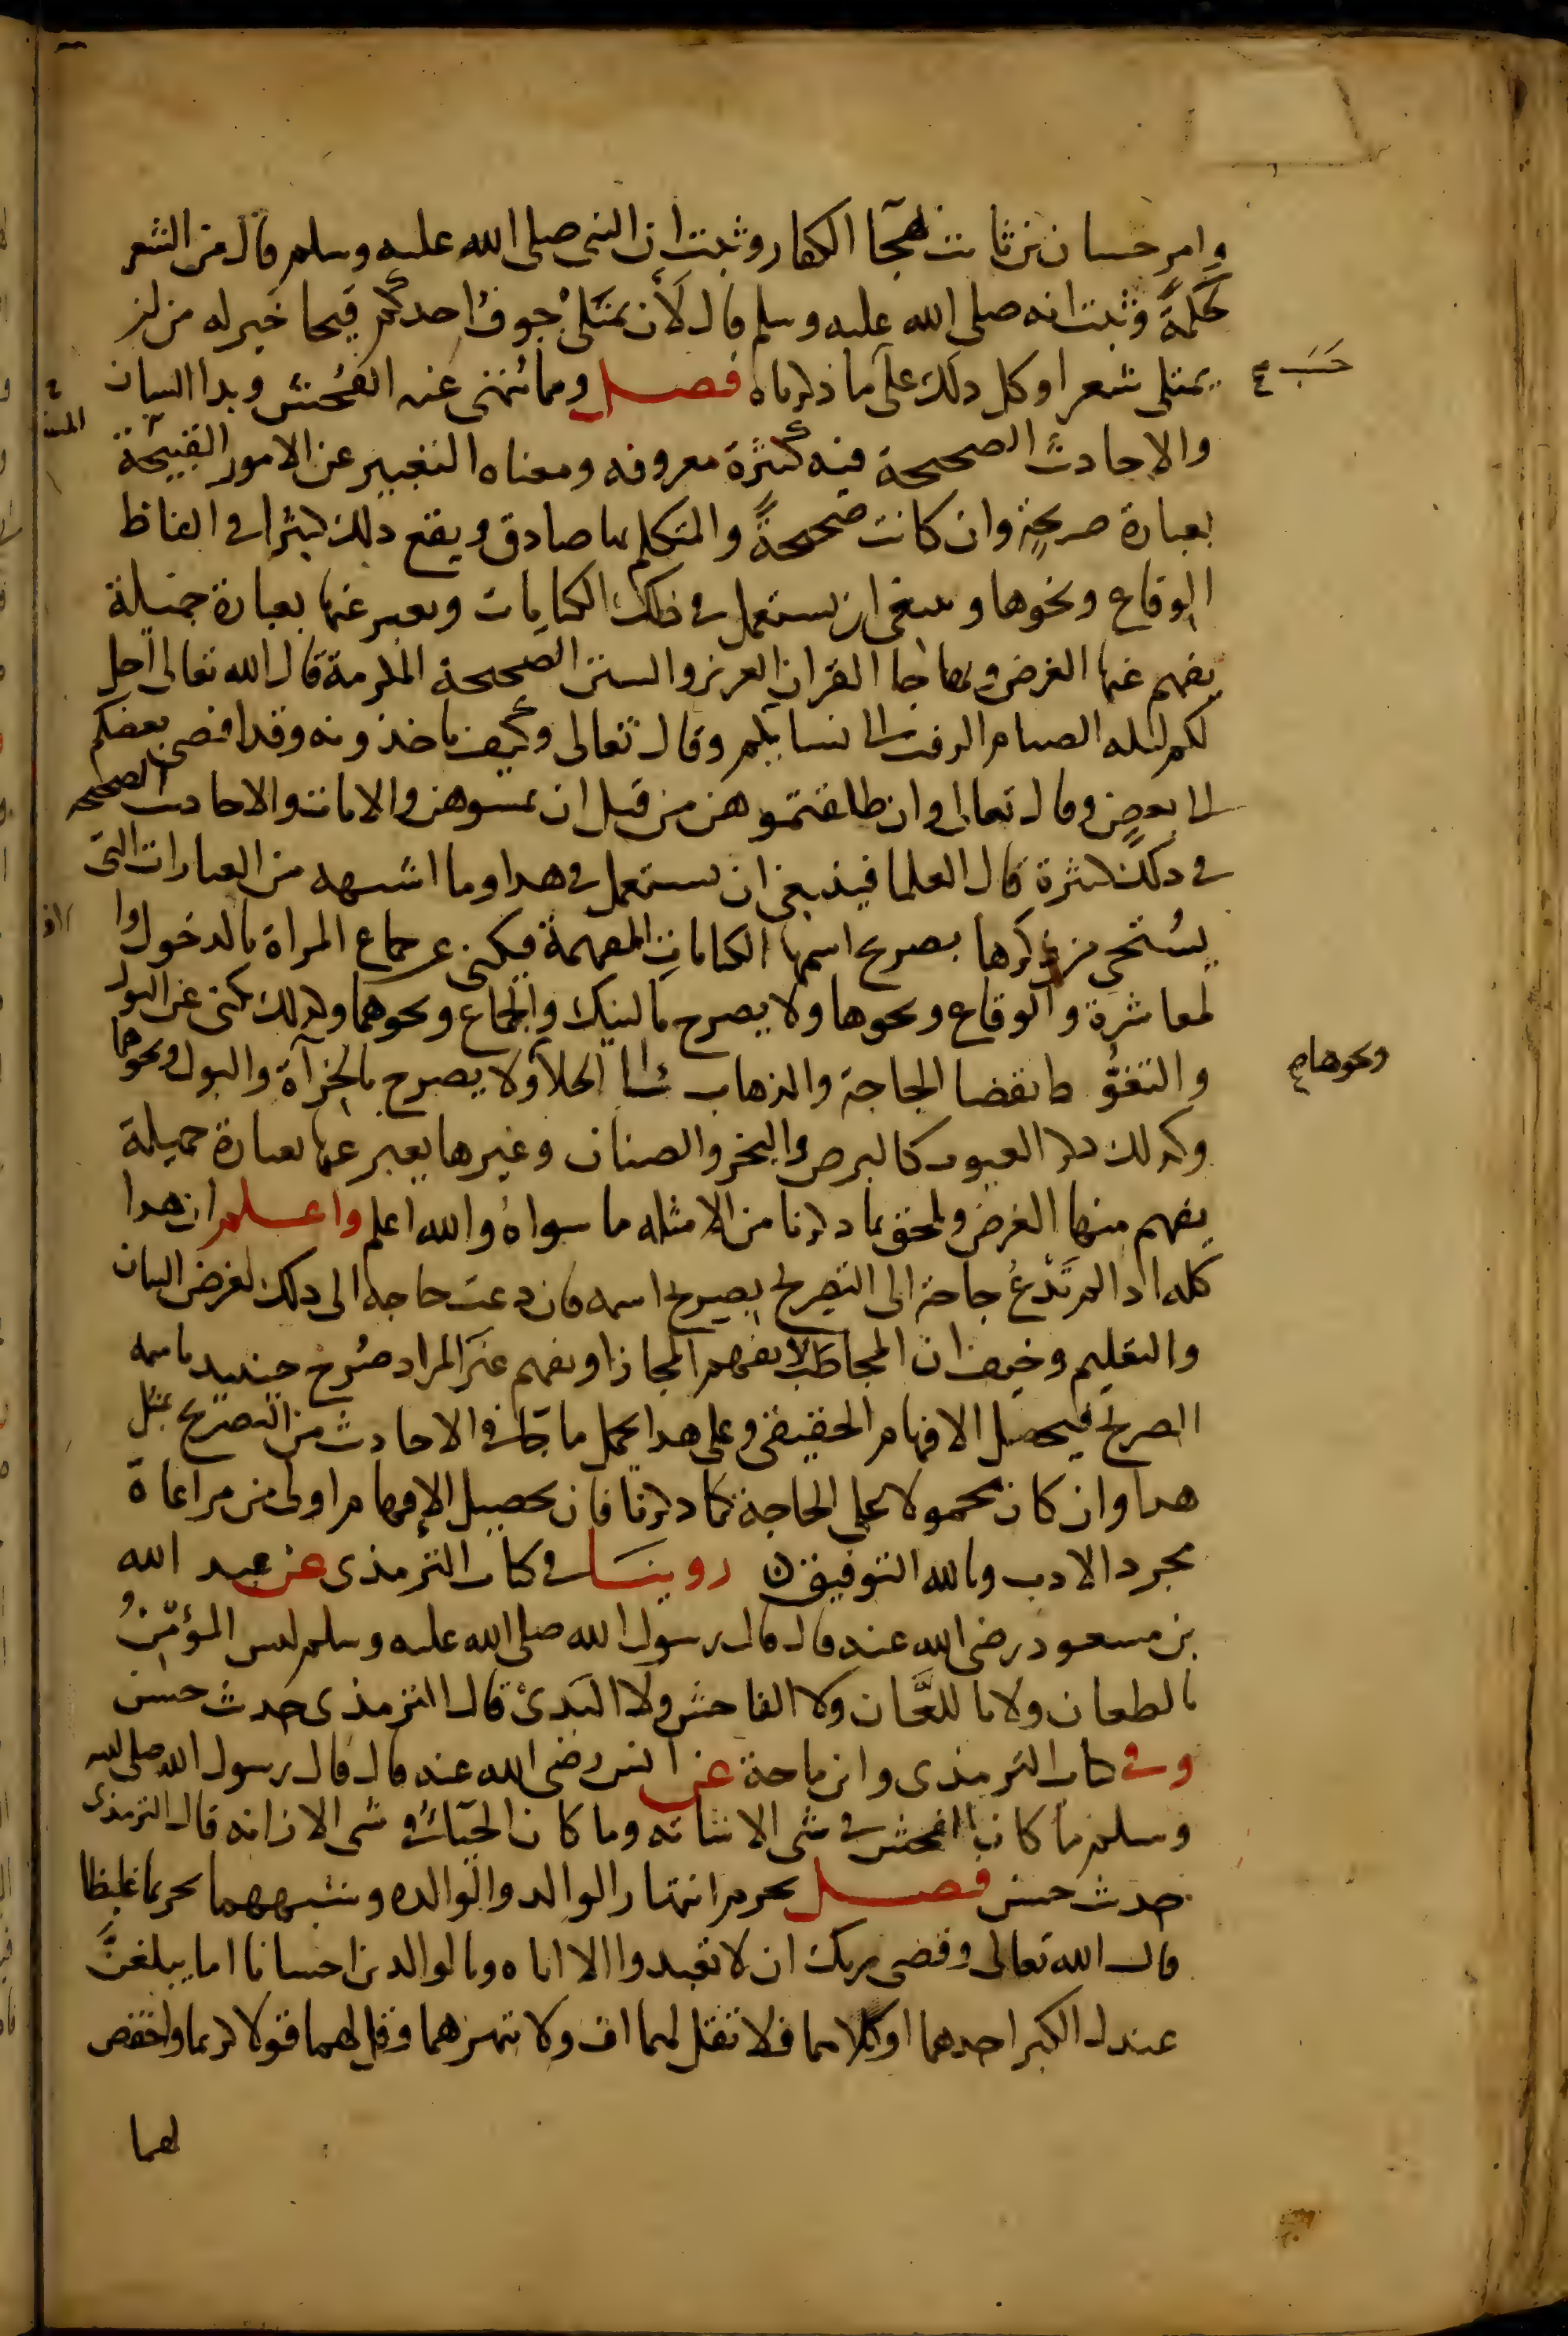 وامر حسان بن ثابت بهجا الكفار وثبت ان النبي صلى الله عليه وسلم قال من الشعر
لحكمة وثبت انه صلى الله عليه وسلم قال لأن يمتلئ جوف احدكم قيحا خير له من ان
يمتلى شعرا وكل ذلك على ما ذكرناه فصل ومما ينهى عنه الفحش وبذا اللسان
حسب
والاحاديث الصحيحة فيه كثيرة معروفه ومعناه التعبير عن الامور القبيحة
بعبارة صريحة وان كانت صحيحة والمتكلم بها صادق ويقع ذلك كثيرا في الفاظ
الوقاع ونحوها وينبغي ان يستعمل في ذلك الكنايات ويعبر عنها بعبارة جميلة
يفهم عنها الغرض وبهذا جا القران العزيز والسنن الصحيحة المكرمة قال الله تعالى احل
لكم ليله الصيام الرفث الى نسايكم وقال تعالى وكيف تاخذونه وقد افضى بعضكم
الى بعض وقال تعالى وان طلقتموهن من قبل ان تمسوهن والايات والاحاديث الصحيحه
في ذلك كثيرة قال العلما فينبغي ان يستعمل في هذا وما اشبهه من العبارات التي
يستحى من ذكرها بصريح اسمها الكنايات المفهمة فيكنى عن جماع المراة بالدخول وا
لمعاشرة والوقاع ونحوها ولا يصرح بالنيك والجماع ونحوهما وكذلك يكنى عن البول
والتغوّط بقضا الحاجة والذهاب الى الخلا ولا يصرح بالخرآة والبول ونحوهما
ونحوها
وكذلك ذكر العيوب كالبرص والبخر والصنان وغيرها يعبر عنها بعبارة جميلة
يفهم منها الغرض ويلحق بما ذكرنا من الامثله ما سواه والله اعلم واعلم ان هذا
كله اذا لم تدع حاجة الى التصريح بصريح اسمه فان دعت حاجة الى ذلك لغرض البيان
والتعليم وخيف ان المخاطب لا يفهم المجاز او يفهم غير المراد صرح حينيد باسمه
الصريح فيحصل الافهام الحقيقي وعلى هذا يحمل ما جا في الاحاديث من التصريح بمثل
هذا وان كان محمولا على الحاجة كما ذكرنا فان تحصيل الإفهام اولى من مراعاة
مجرد الادب وبالله التوفيق روينا في كتاب الترمذي عن عبد الله
بن مسعود رضي الله عنه قال قال رسول الله صلى الله عليه وسلم ليس المؤمن
بالطعان ولا باللعّان ولا الفاحش ولا البذئ قال الترمذي حديث حسن
وفي كتاب الترمذي وابن ماجة عن انس رضي الله عنه قال قال رسول الله صلى الله
وسلم ما كان الفحش في شي الا شانه وما كان الحيا في شي الا زانه قال الترمذي
حديث حسن فصل يحرم انتهار الوالد والوالده وشبههما تحريما غليظا
قال الله تعالى وقضى ربك ان لا تعبدوا الا اياه وبالوالدين احسانا اما يبلغنّ
عندك الكبر احدهما او كلاهما فلا تقل لهما اف ولا تنهرهما وقل لهما قولا كريما واخفض
لهما